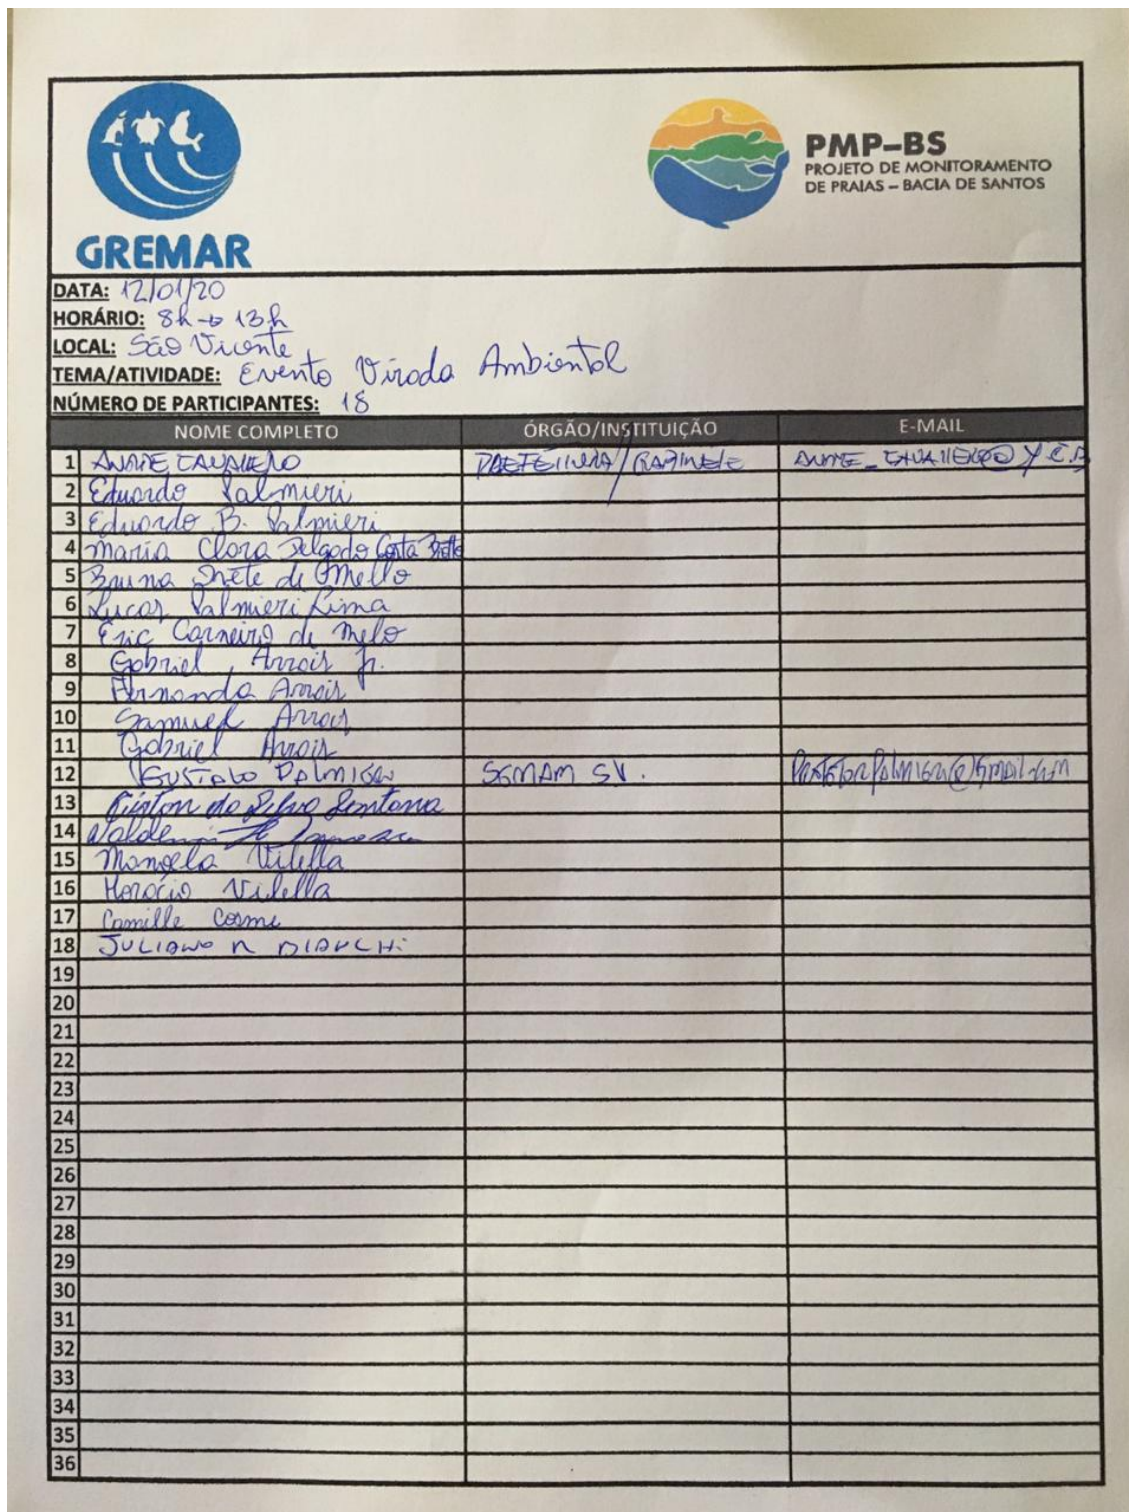 GREMAR
PMP–BS
PROJETO DE MONITORAMENTO
DE PRAIAS – BACIA DE SANTOS
DATA: 12/01/20
HORÁRIO: 8h → 13h
LOCAL: São Vicente
TEMA/ATIVIDADE: Evento Virada Ambiental
NÚMERO DE PARTICIPANTES: 18
NOME COMPLETO ÓRGÃO/INSTITUIÇÃO E-MAIL
1
2 Eduardo Palmieri
3 Eduardo B. Palmieri
4 Maria Clara Delgado Costa
5 Bruna de Mello
6 Lucas Palmieri Lima
7 Eric Carneiro de Melo
8 Gabriel Arrais Jr.
9 Fernanda Arrais
10 Samuel Arrais
11 Gabriel Arrais
12 GUSTAVO PALMIERI SEMAM SV.
13 da Silva Santana
14
15 Manoela Vilella
16 Horácio Vilella
17 Camille Cosme
18 JULIANO
19
20
21
22
23
24
25
26
27
28
29
30
31
32
33
34
35
36